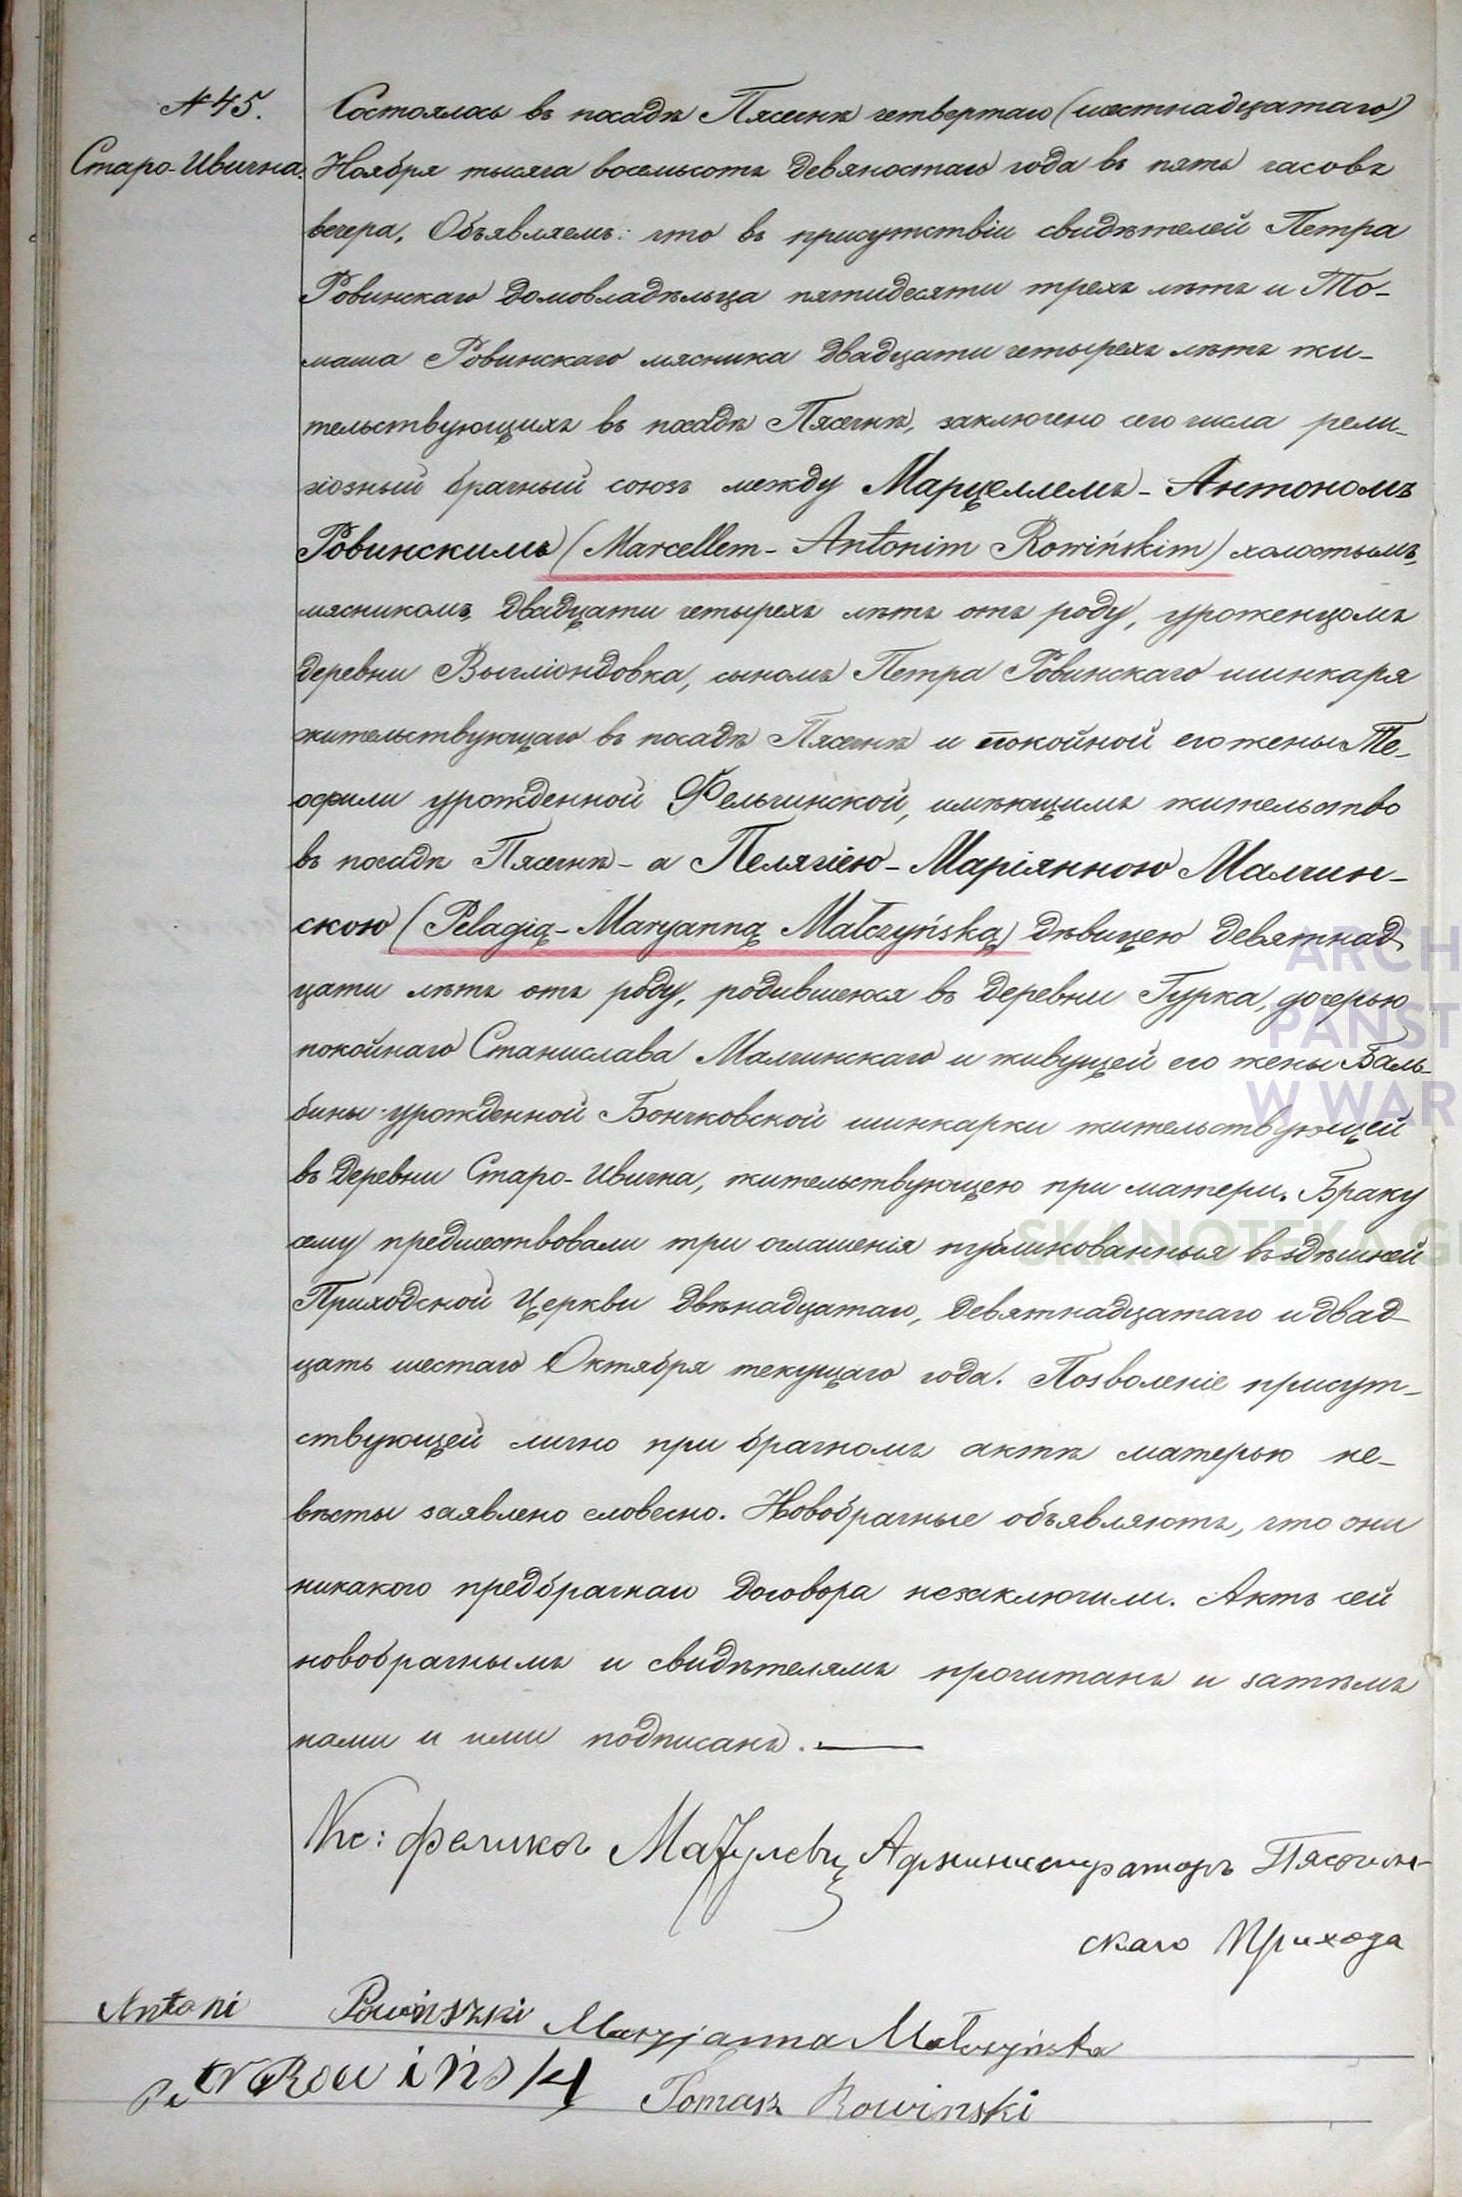 № 45.
Старо-Ивична.
Состоялось въ посадѣ Пясечнѣ четвертаго (шестнадцатаго)
Ноября тысяча восемьсотъ девяностаго года въ пять часовъ
вечера. Объявляемъ: что въ присутствіи свидѣтелей Петра
Ровинскаго домовладѣльца пятидесяти трехъ лѣтъ и То-
маша Ровинскаго мясника двадцати четырехъ лѣтъ жи-
тельствующихъ въ посадѣ Пясечнѣ, заключено сего числа рели-
гіозный брачный союзъ между Марцеллемъ-Антономъ
Ровинскимъ (Marcellem-Antonim Rowińskim) холостымъ,
мясникомъ, двадцати четырехъ лѣтъ отъ роду, уроженцомъ
деревни Выгліондовка, сыномъ Петра Ровинскаго шинкаря
жительствующаго въ посадѣ Пясечнѣ и покойной его жены Те-
офили урожденной Фельчинской, имѣющимъ жительство
въ посадѣ Пясечнѣ - а Пелягіею-Маріянною Малчин-
скою (Pelagią-Maryanną Małczyńską) дѣвицею девятнад-
цати лѣтъ отъ роду, родившеюся въ деревни Гурка, дочерью
покойнаго Станислава Малчинскаго и живущей его жены Баль-
бины урожденной Бончковской шинкарки жительствующей
въ деревни Старо-Ивична, жительствующею при матери. Браку
сему предшествовали три оглашенія публикованныя въ здѣшней
Приходской Церкви двѣнадцатаго, девятнадцатаго и двад-
цать шестаго Октября текущаго года. Позволеніе присут-
ствующей лично при брачномъ актѣ матерью не-
вѣсты заявлено словесно. Новобрачные объявляютъ, что они
никакого предбрачнаго договора незаключили. Актъ сей
новобрачнымъ и свидѣтелямъ прочитанъ и затѣмъ
нами и ими подписанъ.
Кс: Феликсъ Администраторъ Пясечин-
скаго Прихода
Antoni Rowinszki Maryjanna Małczyńska
Rowińsky Tomasz Rowinski
ARCH
PAŃST
W WAR
SKANOTEKA.G